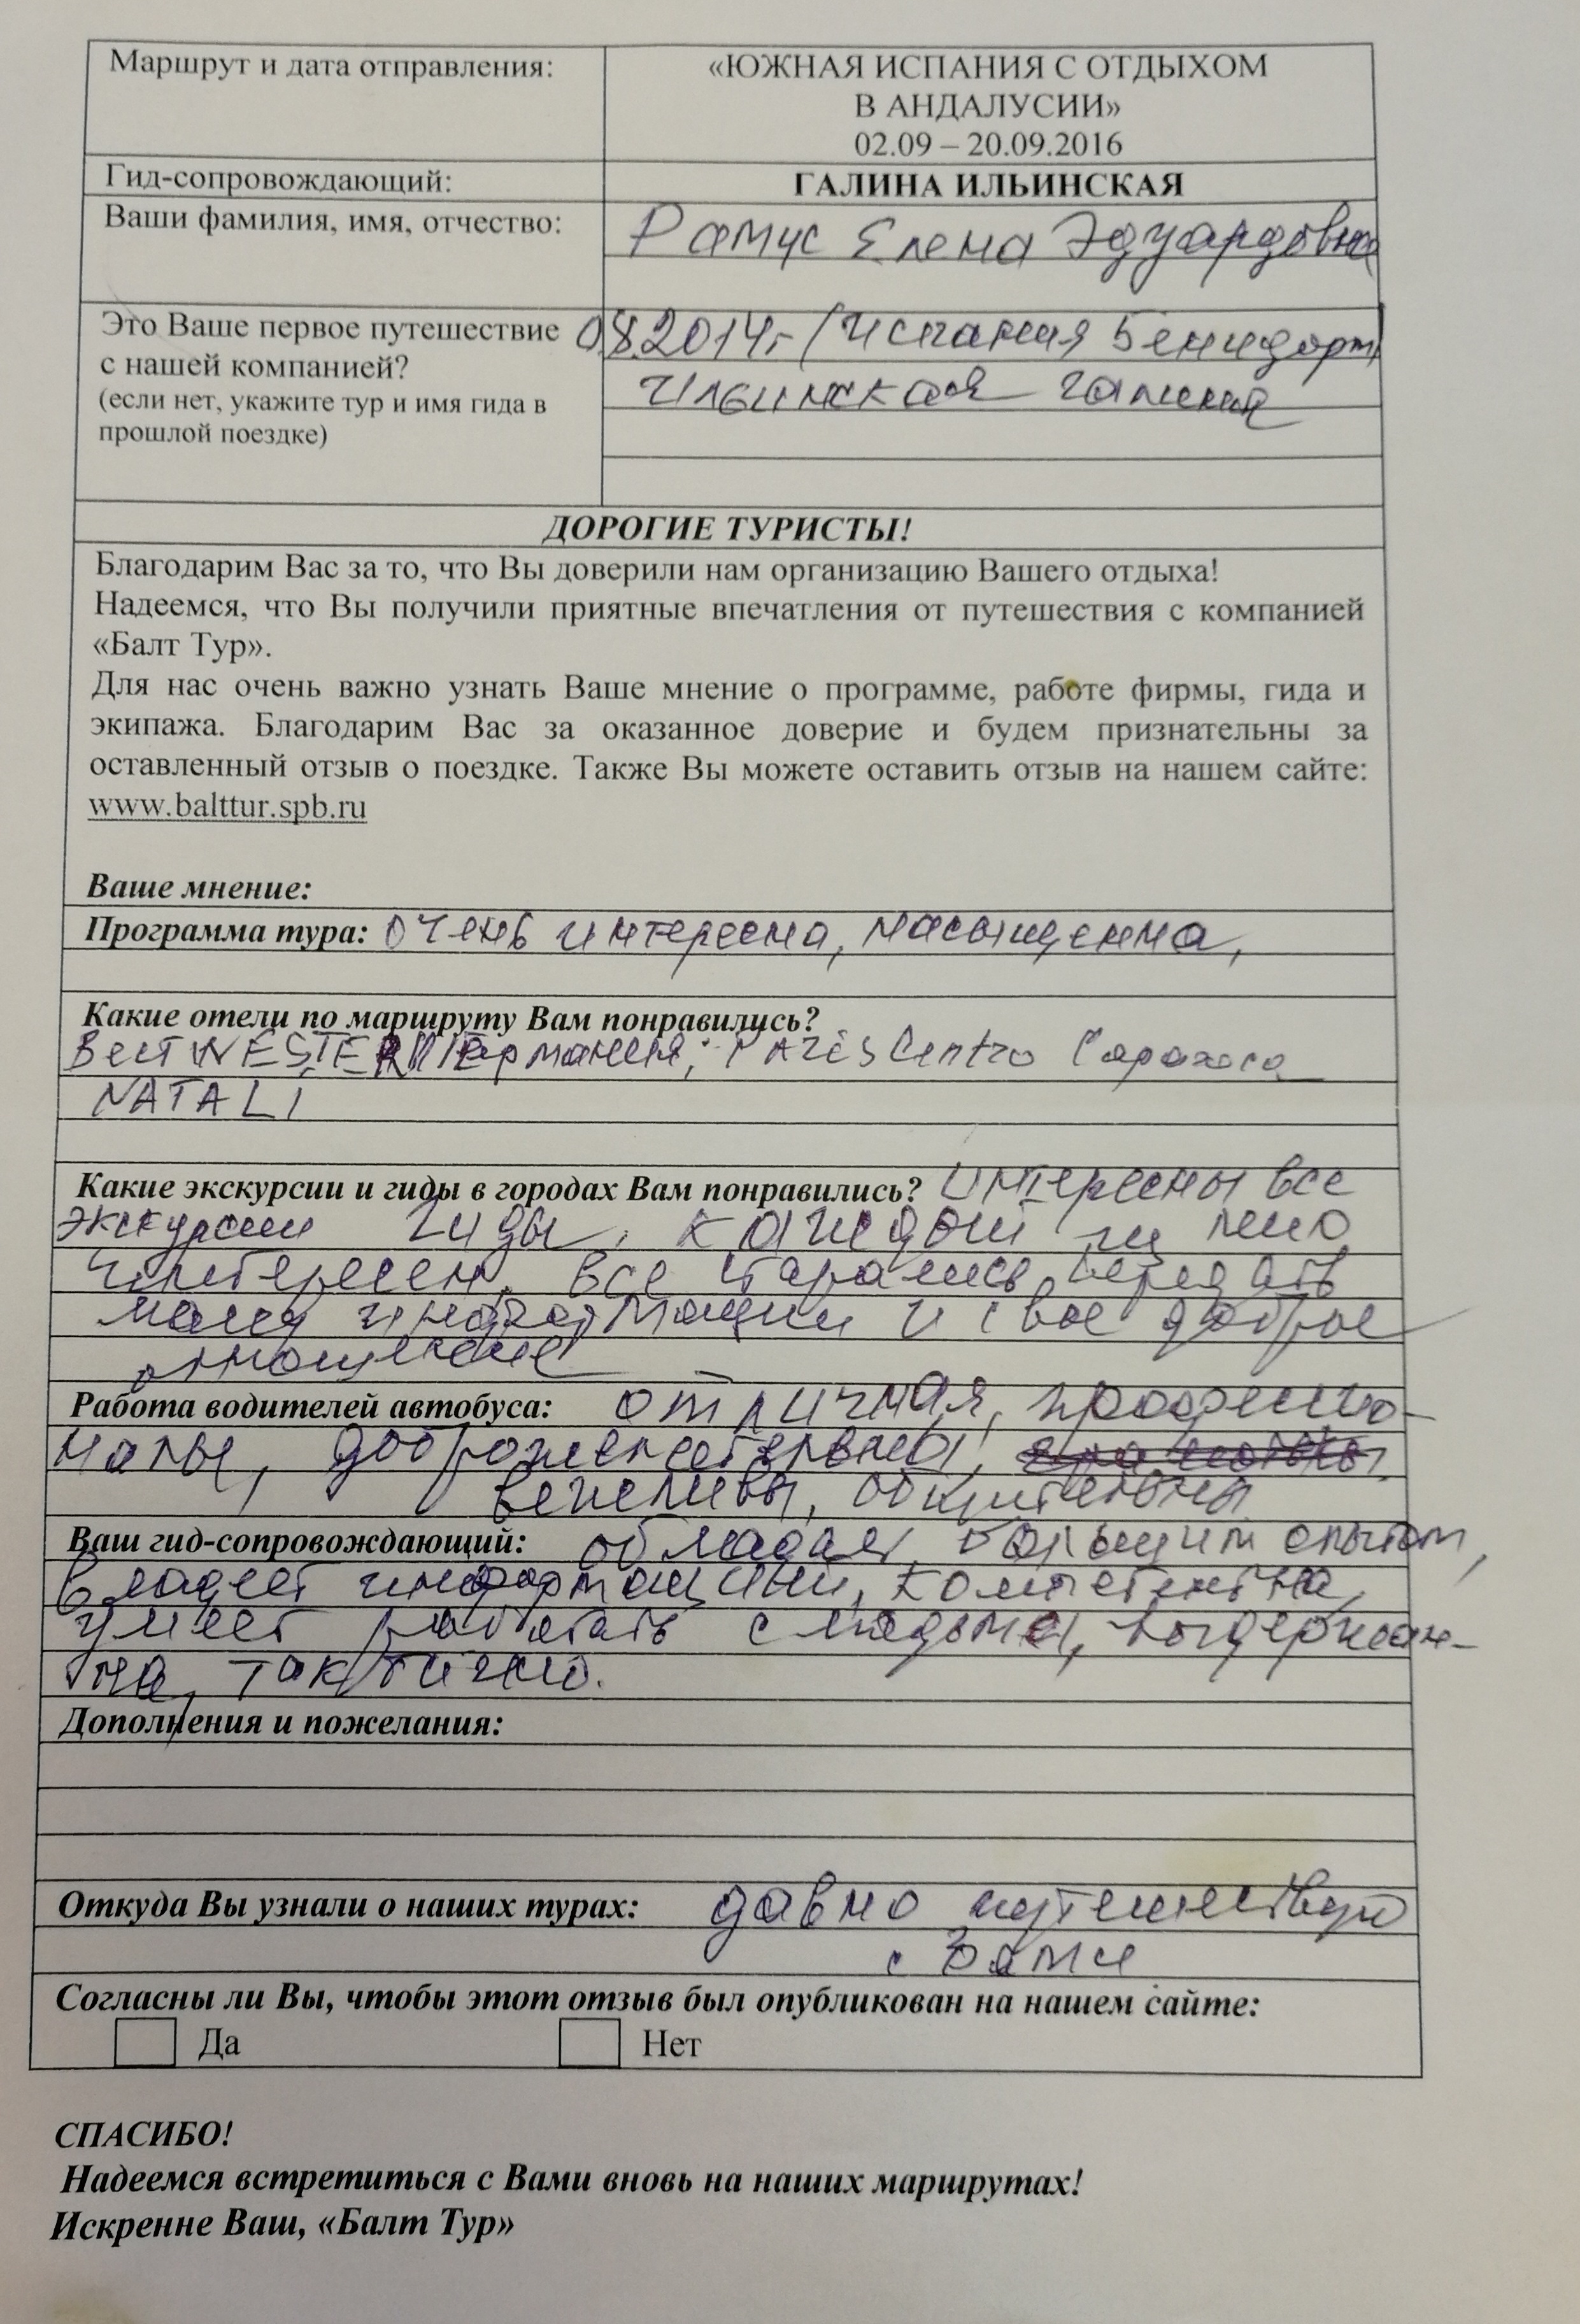 Маршрут и дата отправления:
«ЮЖНАЯ ИСПАНИЯ С ОТДЫХОМ
В АНДАЛУСИИ»
02.09 – 20.09.2016
Гид-сопровождающий:
ГАЛИНА ИЛЬИНСКАЯ
Ваши фамилия, имя, отчество:
Рамус Елена Эдуардовна
Это Ваше первое путешествие
с нашей компанией?
(если нет, укажите тур и имя гида в
прошлой поездке)
08.2014г (Испания Бенидорм)
Ильинская Галина
ДОРОГИЕ ТУРИСТЫ!
Благодарим Вас за то, что Вы доверили нам организацию Вашего отдыха!
Надеемся, что Вы получили приятные впечатления от путешествия с компанией
«Балт Тур».
Для нас очень важно узнать Ваше мнение о программе, работе фирмы, гида и
экипажа. Благодарим Вас за оказанное доверие и будем признательны за
оставленный отзыв о поездке. Также Вы можете оставить отзыв на нашем сайте:
www.balttur.spb.ru
Ваше мнение:
Программа тура: очень интересна, насыщенна,
Какие отели по маршруту Вам понравились?
Вест WESTERN Германия; Centro Сарагоса
NATALI
Какие экскурсии и гиды в городах Вам понравились? Интересны все
экскурсии гиды, каждый
интересен, все старались передать
информации и свое доброе
отношение
Работа водителей автобуса: отличная, професио-
налы, доброжелательны,
вежливы, общительны
Ваш гид-сопровождающий: обладает большим опытом,
Владеет информацией, компетентна,
умеет работать с людьми, выдержан-
на, тактична.
Дополнения и пожелания:
Откуда Вы узнали о наших турах: давно путешествую
с Вами
Согласны ли Вы, чтобы этот отзыв был опубликован на нашем сайте:
Да Нет
СПАСИБО!
Надеемся встретиться с Вами вновь на наших маршрутах!
Искренне Ваш, «Балт Тур»